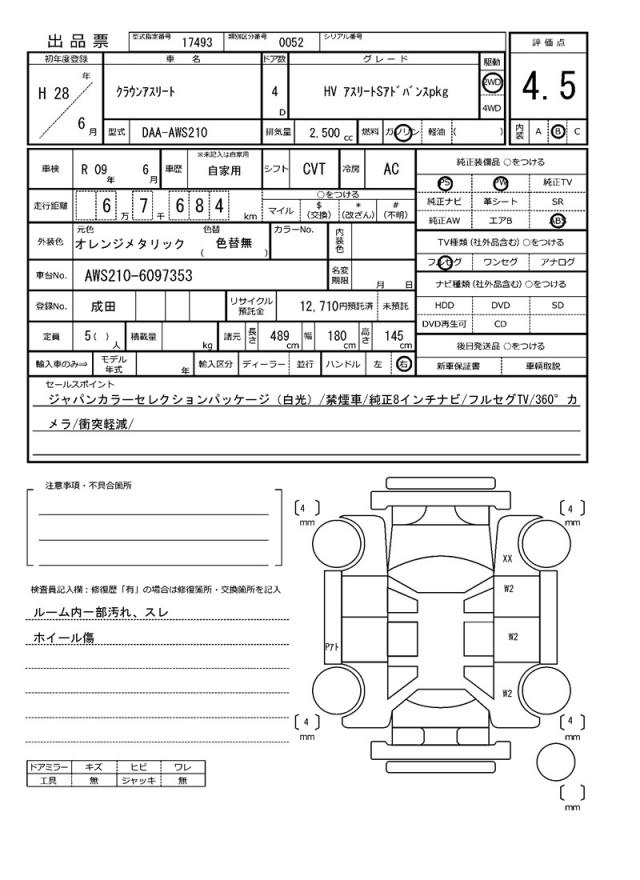 出品票 型式指定番号 17493 類別区分番号 0052 シリアル番号
初年度登録 車名 ドア数 グレード 駆動 評価点
H 28 年 6 月 クラウンアスリート 4 D HV アスリートSアドバンスpkg 2WD 4WD 4.5
型式 DAA-AWS210 排気量 2,500 cc 燃料 ガソリン 軽油 ( ) 内装 A B C
車検 R 09 年 6 月 車歴 ※未記入は自家用 自家用 シフト CVT 冷房 AC 純正装備品 ○をつける
PS PW 純正TV
走行距離 6 万 7 千 6 8 4 km ○をつける マイル $ (交換) * (改ざん) # (不明) 純正ナビ 革シート SR
純正AW エアB ABS
外装色 元色 オレンジメタリック 色替 ( 色替無 ) カラーNo. 内装色 TV種類(社外品含む)○をつける
フルセグ ワンセグ アナログ
車台No. AWS210-6097353 名変期限 月 日 ナビ種類(社外品含む)○をつける
登録No. 成田 リサイクル預託金 12,710円預託済 未預託 HDD DVD SD
DVD再生可 CD
定員 5( ) 人 積載量 kg 諸元 長さ 489 cm 幅 180 cm 高さ 145 cm 後日発送品 ○をつける
輸入車のみ⇒ モデル年式 年 輸入区分 ディーラー 並行 ハンドル 左 右 新車保証書 車輌取説
セールスポイント
ジャパンカラーセレクションパッケージ（白光）/禁煙車/純正8インチナビ/フルセグTV/360°カ
メラ/衝突軽減/
注意事項・不具合箇所
[ 4 ] mm [ 4 ] mm
XX
検査員記入欄：修復歴「有」の場合は修復箇所・交換箇所を記入
W2
ルーム内一部汚れ、スレ
ホイール傷
W2
Pアト
W2
[ 4 ] mm [ 4 ] mm
ドアミラー キズ ヒビ ワレ
工具 無 ジャッキ 無
[ ] mm